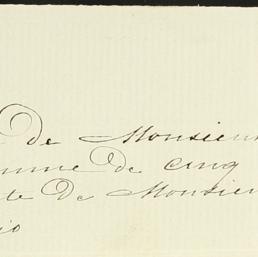 de Monsieur
omme de cinq
te de Monsieur